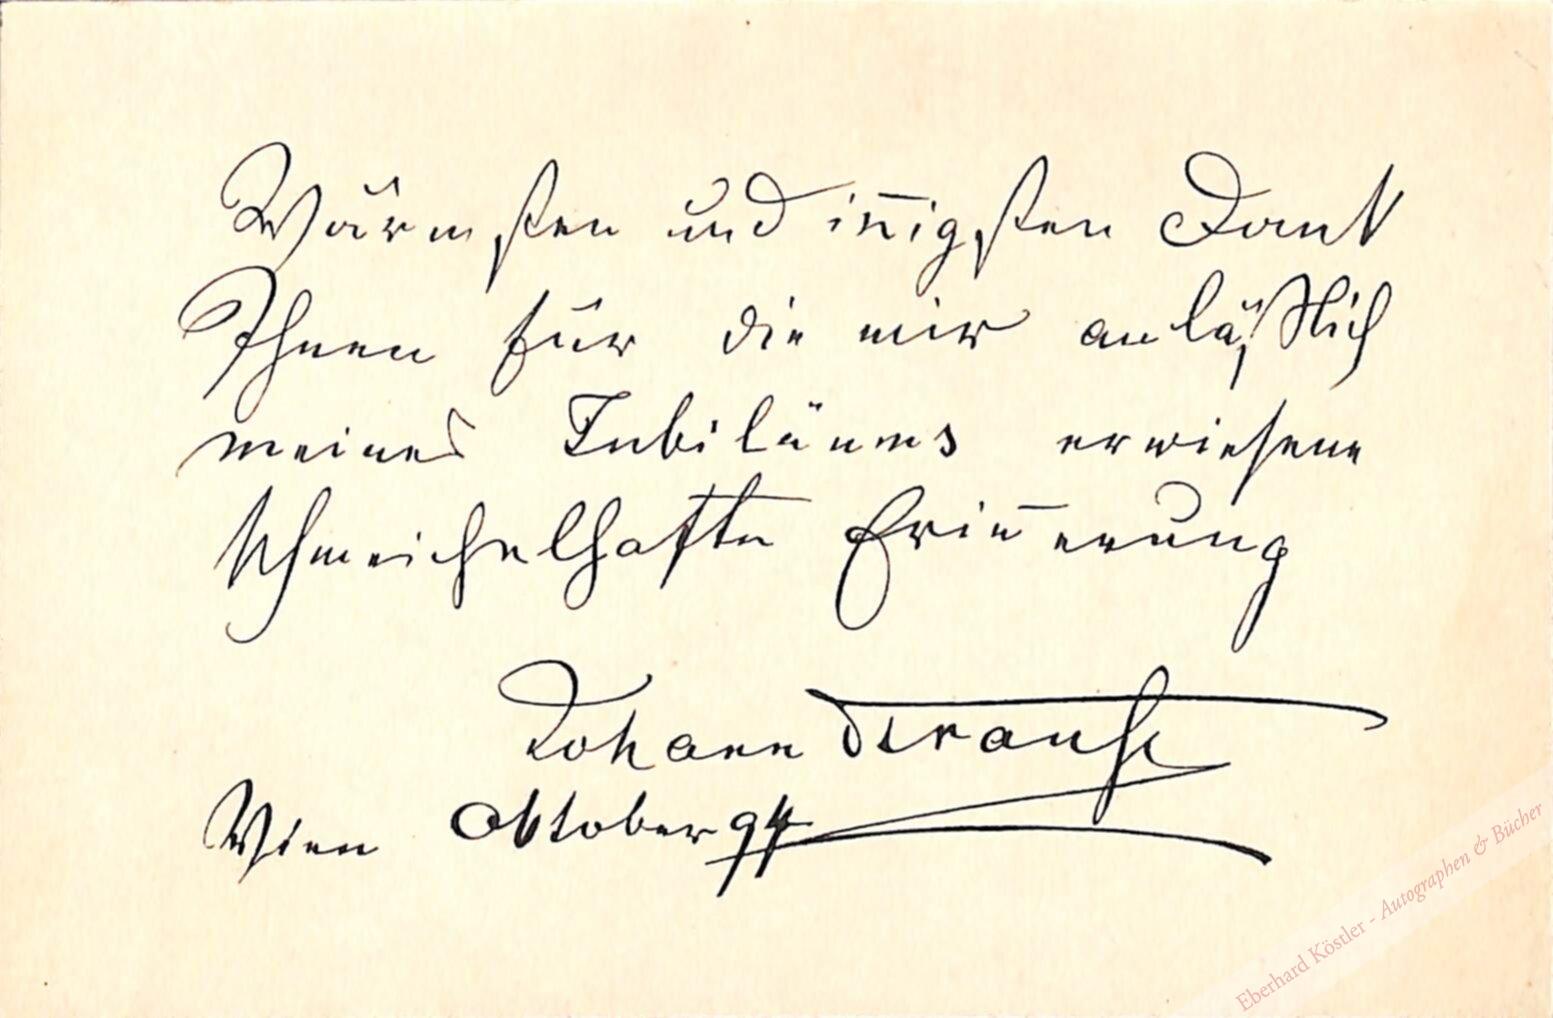 Wärmsten und iñigsten Dank
Ihnen für die mir anläßlich
meines Jubiläums erwiesene
schmeichelhafte Erin̄erung
Johann Strauss
Wien Oktober 94
Eberhard Köstler - Autographen & Bücher